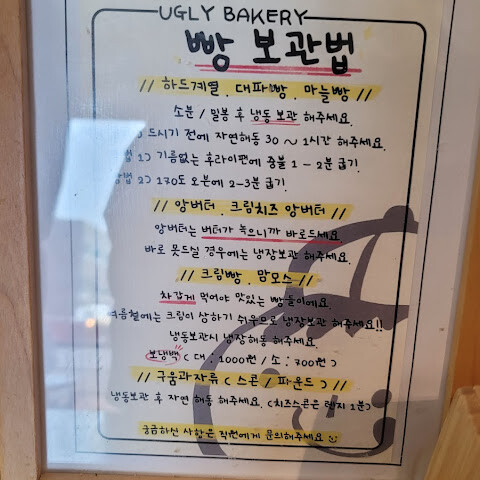 UGLY BAKERY
빵 보관법
// 하드계열. 대파빵. 마늘빵 //
소분 / 밀봉 후 냉동 보관 해주세요.
드시기 전에 자연해동 30 ~ 1시간 해주세요.
법 1) 기름없는 후라이팬에 중불 1 - 2분 굽기.
방법 2) 170도 오븐에 2-3분 굽기.
// 앙버터. 크림치즈 앙버터 //
앙버터는 버터가 녹으니까 바로드세요.
바로 못드실 경우에는 냉장보관 해주세요.
// 크림빵. 맘모스 //
차갑게 먹어야 맛있는 빵들이에요.
여름철에는 크림이 상하기 쉬우므로 냉장보관 해주세요!!
냉동보관시 냉장해동 해주세요.
보냉백 ( 대 : 1000원 / 소 : 700원 )
// 구움과자류 ( 스콘 / 파운드 ) //
냉동보관 후 자연 해동 해주세요. (치즈스콘은 렌지 1분)
궁금하신 사항은 직원에게 문의해주세요